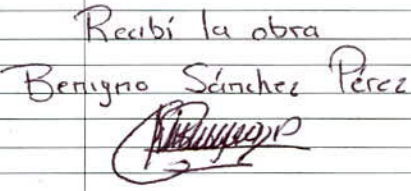 Recibí la obra
Benigno Sánchez Pérez